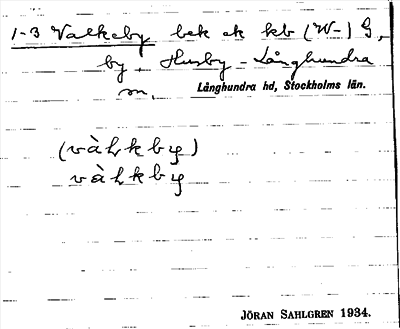 1-3 Valkeby bek ek kb (W-) G,
by, Husby-Långhundra
sn, Långhundra hd, Stockholms län.
(vàⱡkby)
vàⱡkby
JÖRAN SAHLGREN 1934.